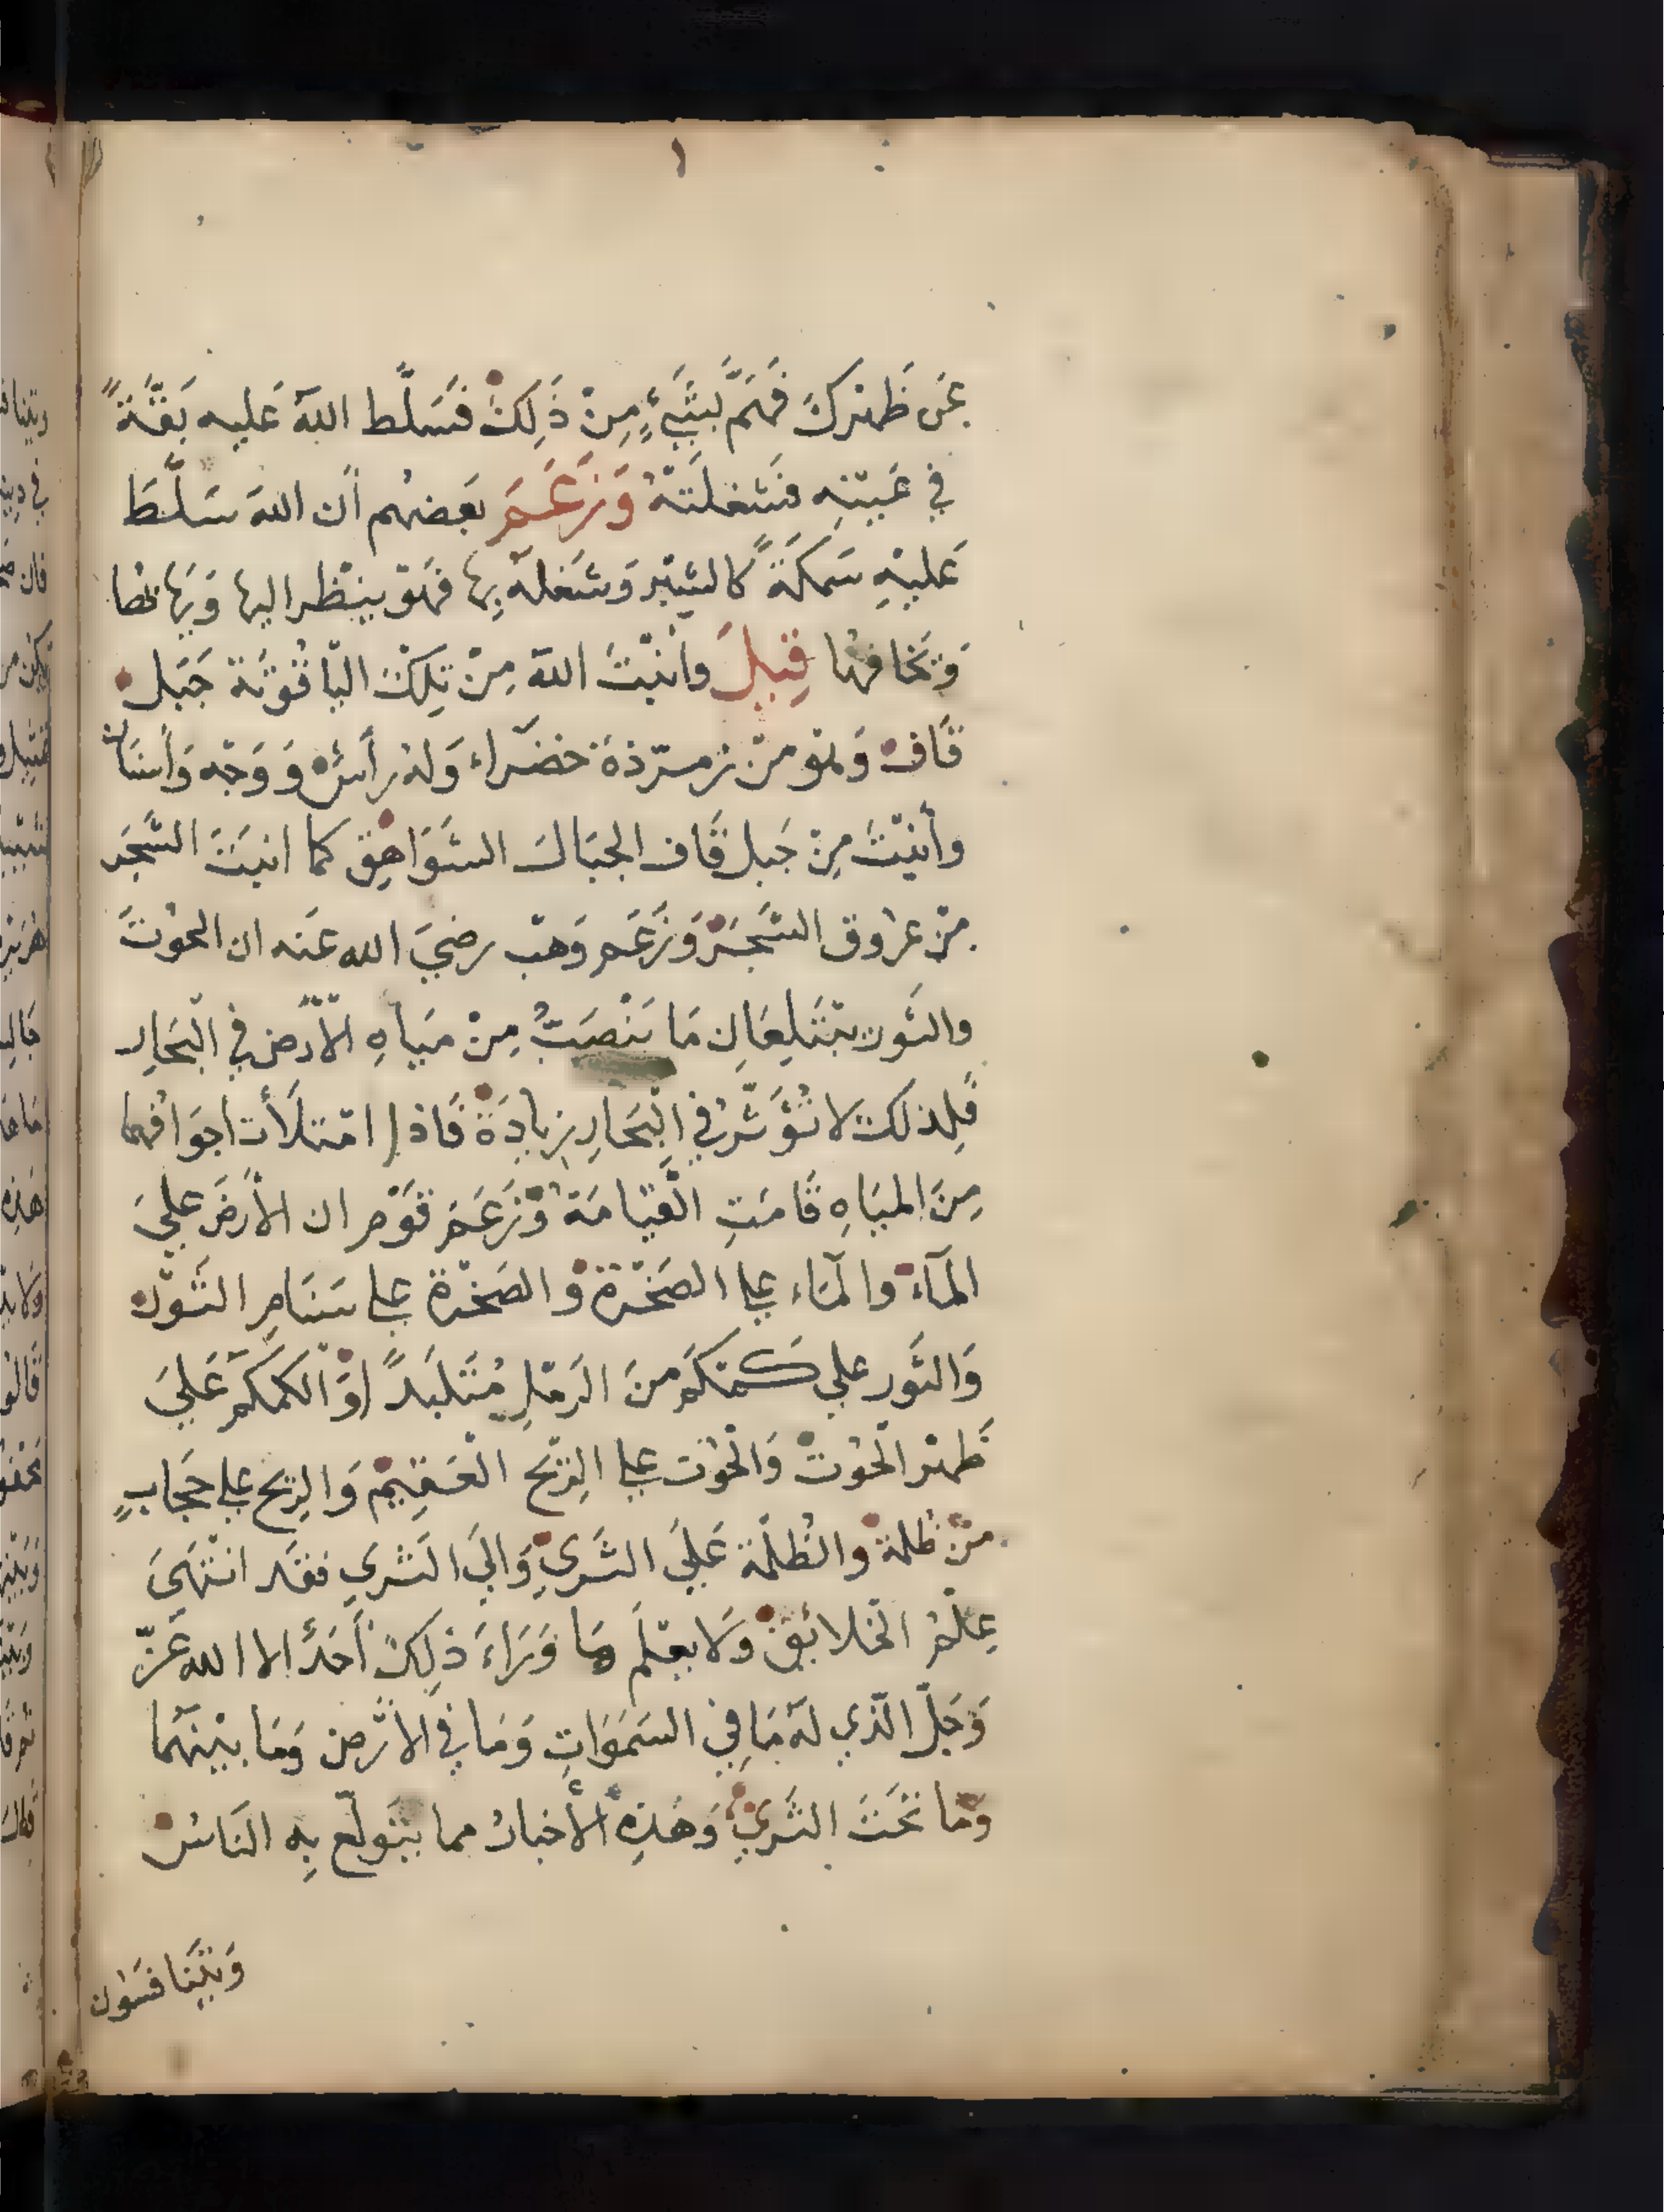 ١
عَن ظَهرِكَ فَهَمَّ بِشَيْءٍ مِنْ ذَلِكَ فَسَلَّط اللهُ عَليه بَقَّةً
في عَينِه فَشغلَتهُ وَزَعَمَ بَعضهُم أن اللهَ سَلَّطَ
عَليهِ سَمكَةً كالشِبْر وَشَغلَهُ بِهَا فَهَوَ يَنظُر اليها وَيَهَابُهَا
وَيَخافهُا قِيلَ وأنبَتَ اللهُ مِنْ تِلكَ اليَاقُوتَة جَبَل
قَاف وَهْوَ مِنْ زمرّذة خَضَراء وَلهُ رأسُ وَوَجْه وَأسنَانٌ
وأنبَتَ مِنْ جَبل قَاف الجبَالَ الشَوَاهِق كما انبَتَ الشَّجَر
مِنْ عرُوق الشَجَر وَزَعَم وَهْب رضيَ الله عَنه ان الحُوتَ
والثَور يَبْتَلِعَانِ مَا يَنْصَبُّ مِنْ مِيَاهِ الأرْضِ في البَحَارِ
فَلِذلكَ لا تُؤثّرُ في البَحَارِ زيادَة فَاذا امْتلَأت اجوَافهُما
مِنَ المِيَاهِ قَامَتِ القيَامَة وَزَعَمَ قَوْم ان الأرضَ عليَ
المآء والمَاء على الصَخْرة والصَخْرة على سَنَامِ الثَوْر
وَالثَور علي كمْكَم مِنَ الرَمْلِ مُتَلَبدًا وَالكمكم عَليَ
ظَهرْ الحُوت وَالحُوت على الرِيْح العَقِيْم وَالرِيح على حجَابٍ
مِنْ ظُلمة والظُلْمَة عَلَيَ الثَرَي وَاليَ الثَري فقَد انْتَهَيَ
عِلْمُ الخَلائِقْ وَلا يعْلَم مَا وَرَاءَ ذلِكَ أحَدٌ الا الله عَزَّ
وَجَلّ الّذي لهُ مَا فِي السَمَوَاتِ وَمَا في الأرْض وَمَا بيْنَهُمَا
وَمَا تَحَتَ الثَري وَهَذِهِ الأخبارُ مما يَتولّع بِه النَاسُ
وَيَتَنافسُون